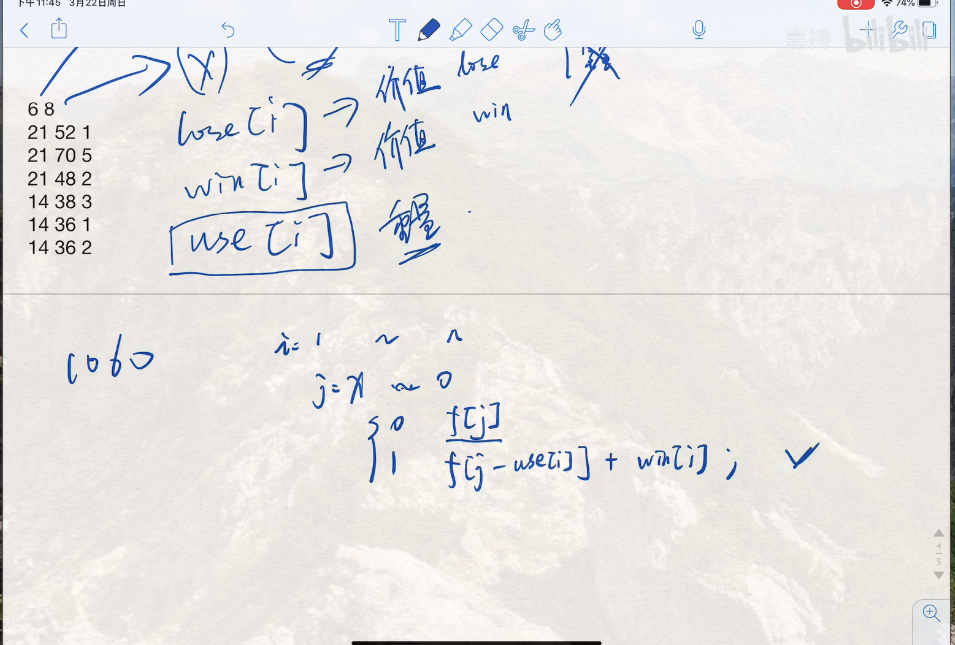 下午11:45 3月22日周日
74%
bilibili
(x)
6 8
21 52 1
21 70 5
21 48 2
14 38 3
14 36 1
14 36 2
lose[i] → 价值 lose
win[i] → 价值 win
use[i] 重量
1060
i= 1 ~ n
j= x ~ 0
0 f[j]
1 f[j-use[i]] + win[i];
4
5